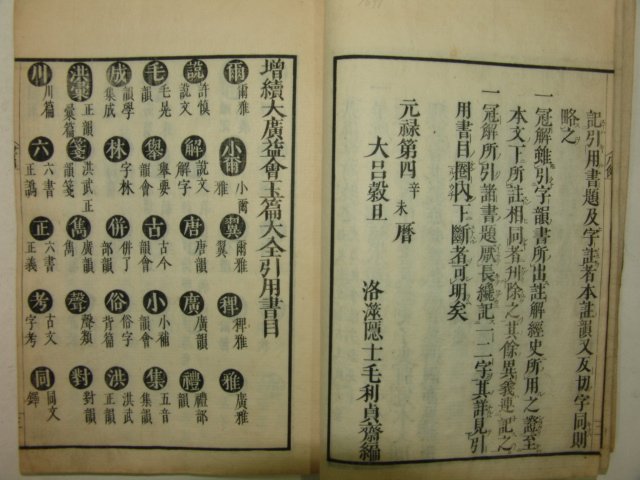 記引用書題及字註者本註韻又及切字同則
略之
一冠解雖引字韻書所出註解經史所用之證至
本文下所註相同者刋除之其餘異義連記之
一冠解所引諸書題厭長纔記一二字其詳見引
用書目圈內下斷者可明矣
元禄第四辛未曆
大呂穀旦
洛澨隱士毛利貞齋編
增續大廣益會玉篇大全引用書目
爾 爾雅 小爾 小爾雅 翼 爾雅翼 稗 稗雅 雅 廣雅
說 許慎說文 解 說文解字 唐 唐韻 廣 廣韻 禮 禮部韻
毛 毛晃韻 舉 舉要韻會 古 古今韻會 小 小補韻會 集 五音集韻
成 韻學集成 林 字林 併 併了部韻 俗 俗字背篇 洪 洪武正韻
洪彙 正韻彙篇 箋 正韻箋 雋 廣韻雋 聲 聲類 對 對韻
川 川篇 六 六書正譌 正 六書正義 考 古文字考 同 同文鐸